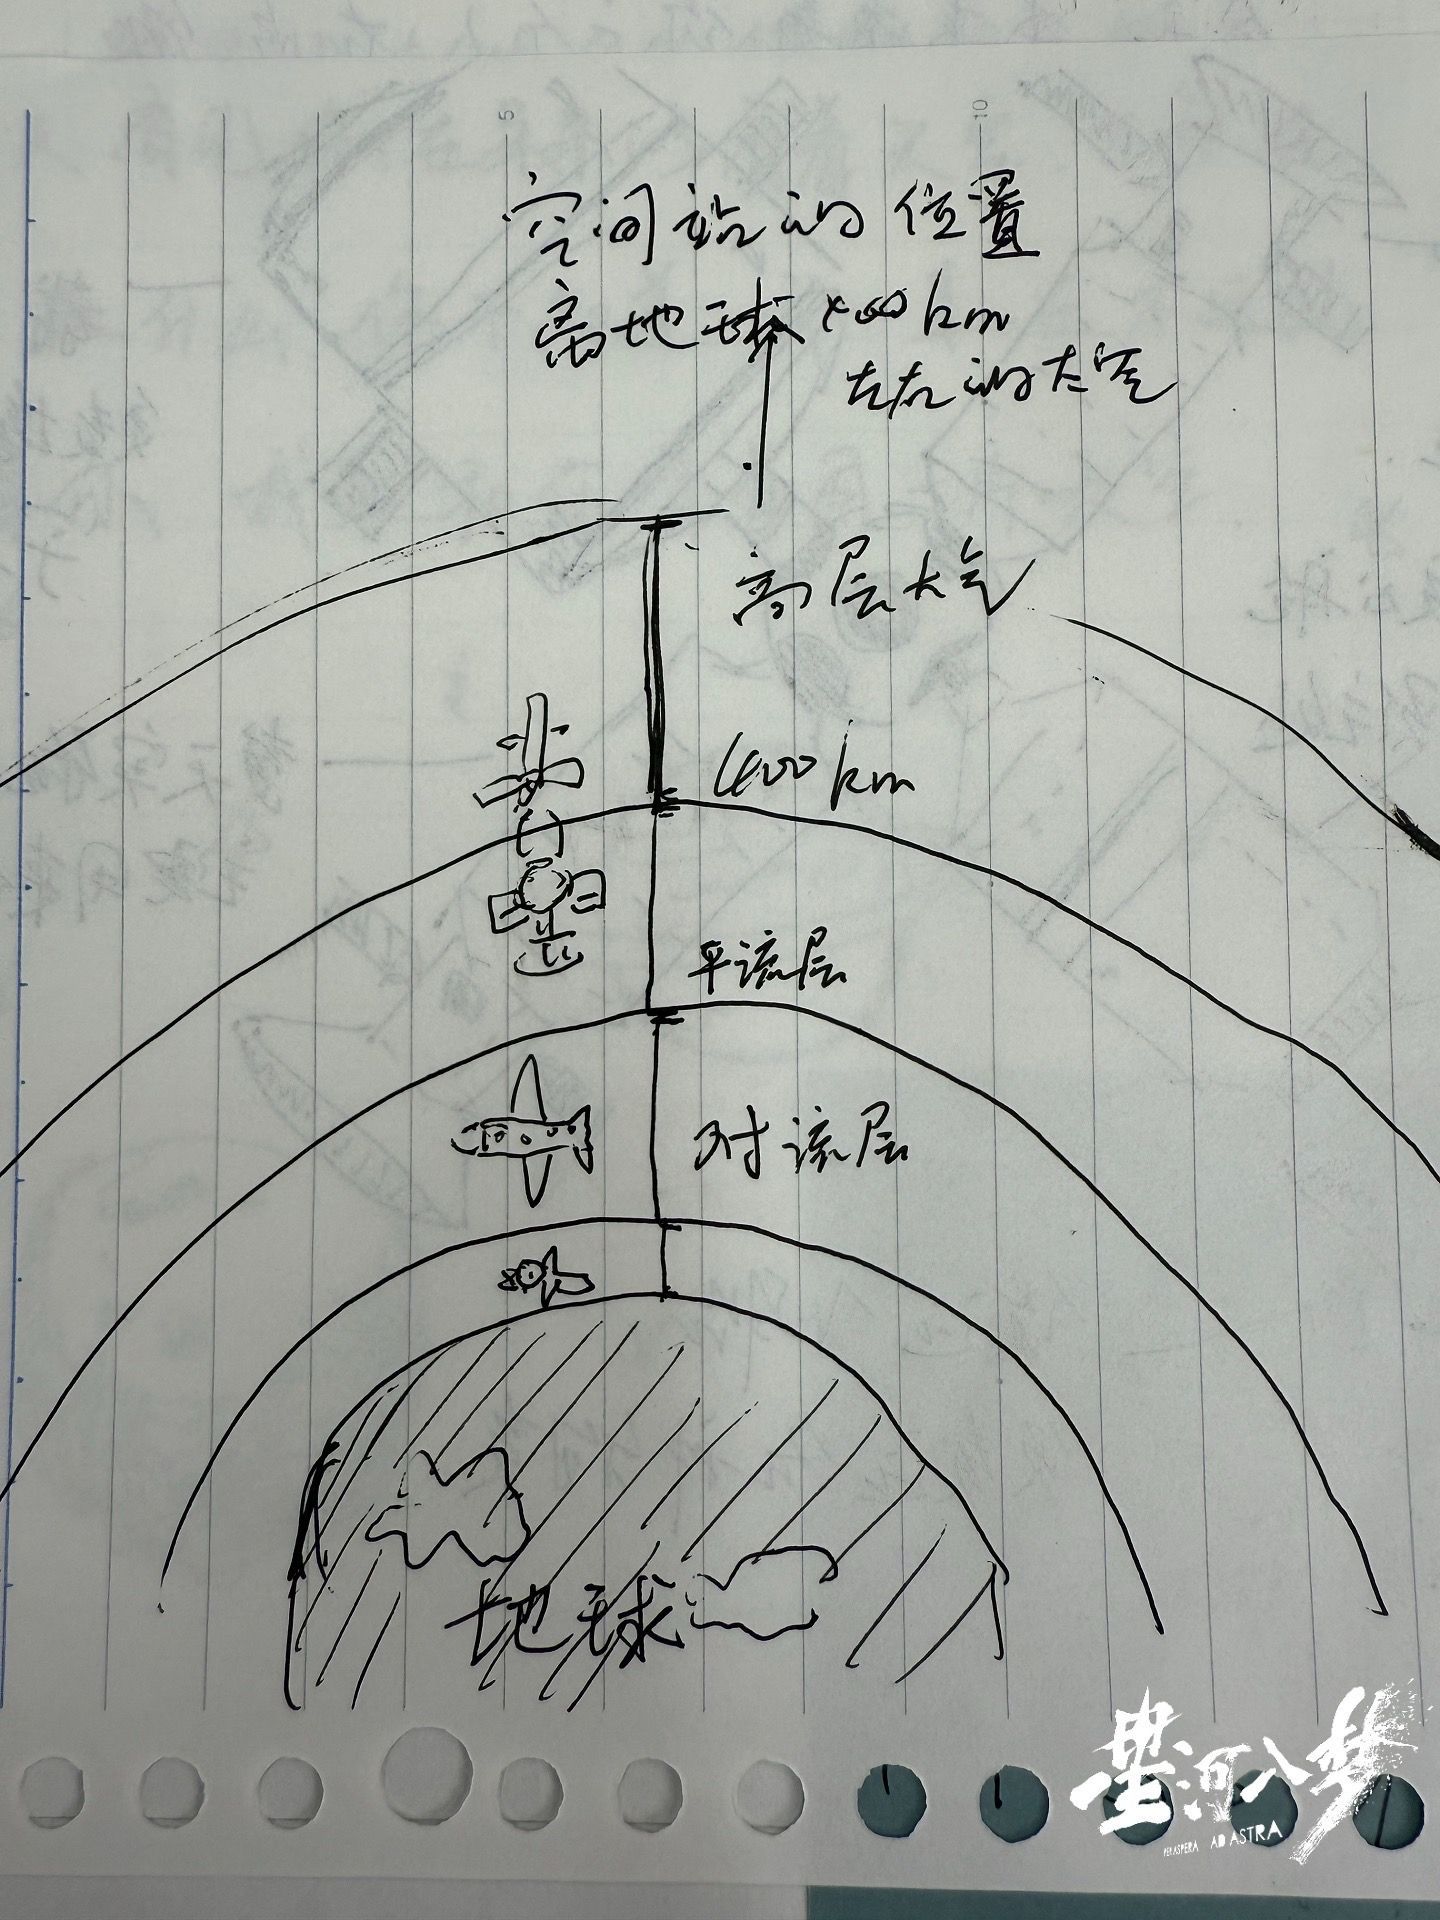 5
10
空间站的位置
离地球400km
左右的太空
高层大气
400km
平流层
对流层
地球
星河入梦
PER ASPERA AD ASTRA